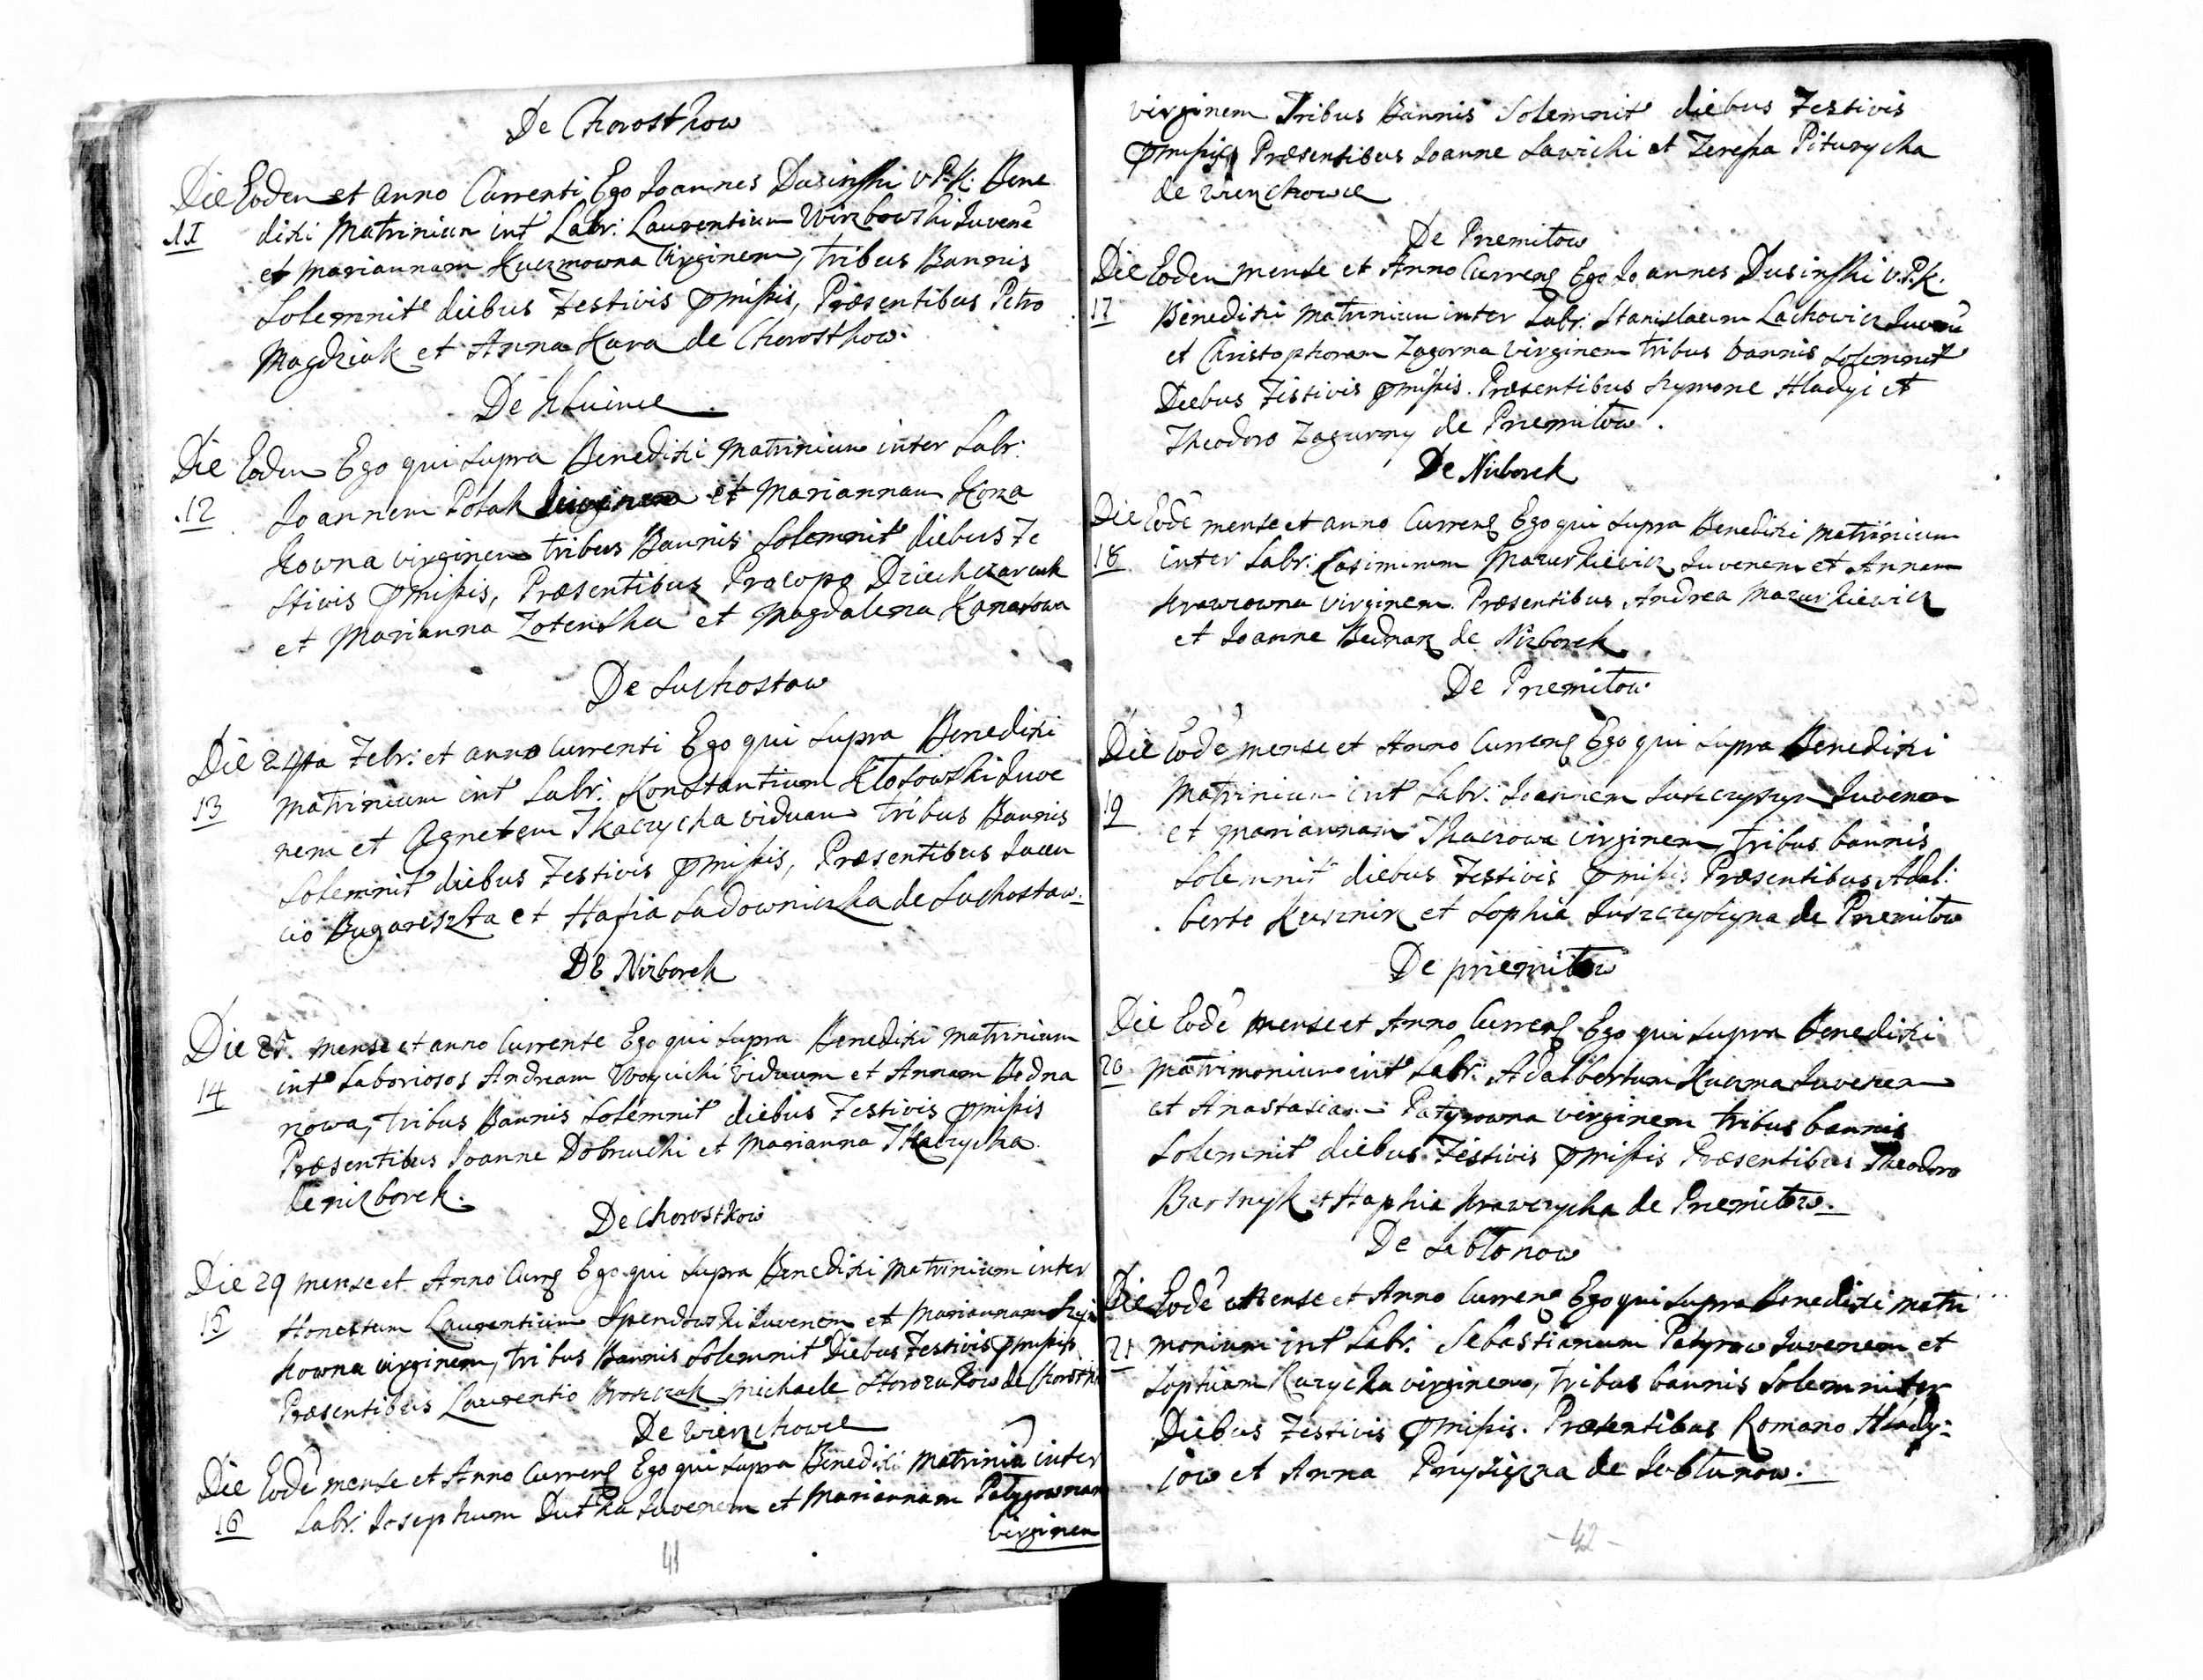 De Chorostkow
Die Eoden et anno Currenti Ego Joannes Dusinski V.P.K. Bene
11 dixi Matrinium int Labr: Laurentium Wirzbowski Juvene
et Mariannam Kuczmowna Virginem, tribus Bannis
Solemnit diebus Festivis pmissis, Præsentibus Petro
Magdziak et Anna Kara de Chorostkow.
De Kluince
Die Eoden Ego qui supra Benedixi Matrinium inter Labr:
12 Joannem Polak et Mariannam Koza
kowna virginem tribus Bannis Solemnit diebus Fe
stivis pmissis, Præsentibus Procopo
et Marianna Zotenska et Magdalena
De Suchostaw
Die 24ta Febr: et anno Currenti Ego qui supra Benedixi
13 Matrinium int Labr: Konstantium Kłosowski Juve
nem et Agnetem Tkaczycha viduam tribus Bannis
Solemnit diebus Festivis pmissis, Præsentibus Luca
cio et Hafia Sadowniczka de Suchostaw.
DE Nizborek
Die 25. mense et anno Currente Ego qui supra Benedixi Matrinium
14 int Laboriosos Andream Woycicki Viduum et Annam Bedna
rowa, tribus Bannis Solemnit diebus Festivis pmissis
Præsentibus Joanne Dobrucki et Marianna Tkaczycha
de nizborek.
De Chorostkow
Die 29 mense et Anno Curr Ego qui supra Benedixi Matrinium inter
15 Honestum Laurentium Spendowski Juvenem et Mariannam
kowna virginem, tribus Bannis Solemnit Diebus Festivis pmissis
Præsentibus Laurentio Michaele de Chorostk
De Wierzchowce
Die Eode mense et Anno Curren Ego qui supra Benedixi Matriniu inter
16 Labr: Josephum Dutka Juvenem et Mariannam Patyrownam
virginem
41
virginem Tribus Bannis Solemnit diebus Festivis
pmissis Præsentibus Joanne Sawicki et Teressa Piturycha
de Wierzchowce
De Przemitow
Die Eoden mense et Anno Curren Ego Joannes Dusinski V.P.K.
17 Benedixi matrinium inter Labr: Stanislaum Lachowicz Juvene
et Christophoram Zagorna Virginem tribus bannis Solemnit
Diebus Festivis pmissis. Præsentibus Szymone Hladyi et
Theodoro Zagurny de Przemitow.
De Nizborek
Die Eode mense et anno Curren Ego qui supra Benedixi Matrinium
18 inter Labr: Casimirum Mazurkiewicz Juvenem et Annam
Krawcowna Virginem. Præsentibus Andrea Mazurkiewicz
et Joanne Bednarz de Nizborek
De Przemitow
Die Eode mense et Anno Curren Ego qui supra Benedixi
19 Matrinium int Labr: Joannem Juvenem
et Mariannam Tkaczowa virginem, tribus bannis
Solemnit diebus Festivis pmissis Præsentibus Adal:
berto Kusznir et Sophia Juszczyszyna de Przemitow
De przemitow
Die Eode mense et Anno Curren Ego qui supra Benedixi
20 Matrimonium int Labr: Adalbertum Kuczma Juvenem
et Anastasiam Patyrowna virginem tribus bannis
Solemnit diebus Festivis pmissis Præsentibus Theodoro
Bartnyk et Haphia Krawczycha de Przemitow.
De Jabłonow
Die Eode Mense et Anno Curren Ego qui supra Benedixi Matri
21 monium int Labr: Sebastianum Patyrow Juvenem et
Sophiam Kuzycka virginem, tribus bannis Solemniter
Diebus Festivis pmissis. Præsentibus Romano Hlady:
iow et Anna de Jabłunow.
- 42 -